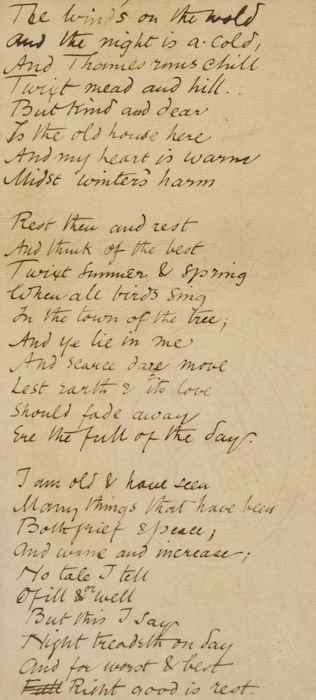 The wind's on the wold
And the night is a-cold,
And Thames runs chill
Twixt mead and hill.
But kind and dear
Is the old house here
And my heart is warm
Midst winter's harm
Rest then and rest
And think of the best
Twixt summer & spring
When all birds sing
In the town of the tree;
And ye lie in me
And scarce dare move
Lest earth & its love
Should fade away
Ere the full of the day.
I am old & have seen
Many things that have been
Both grief & peace;
And wane and increase;
No tale I tell
Of ill & or well
But this I say
Night treadeth on day
And for worst & best
Right good is rest.